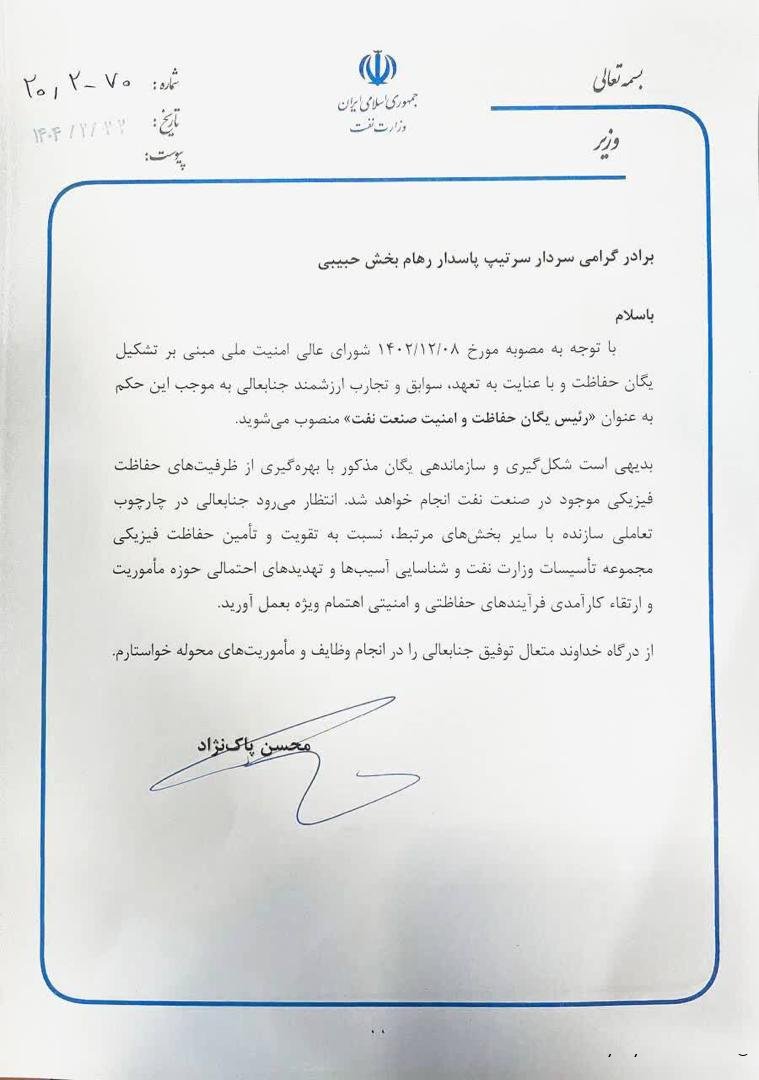 بسمه تعالی
جمهوری اسلامی ایران
وزارت نفت
وزیر
شماره: ۲۰٫۲-۷۰
تاریخ: ۱۴۰۴/۲/۲۲
پیوست:
برادر گرامی سردار سرتیپ پاسدار رهام بخش حبیبی
باسلام
با توجه به مصوبه مورخ ۱۴۰۲/۱۲/۰۸ شورای عالی امنیت ملی مبنی بر تشکیل
یگان حفاظت و با عنایت به تعهد، سوابق و تجارب ارزشمند جنابعالی به موجب این حکم
به عنوان «رئیس یگان حفاظت و امنیت صنعت نفت» منصوب می‌شوید.
بدیهی است شکل‌گیری و سازماندهی یگان مذکور با بهره‌گیری از ظرفیت‌های حفاظت
فیزیکی موجود در صنعت نفت انجام خواهد شد. انتظار می‌رود جنابعالی در چارچوب
تعاملی سازنده با سایر بخش‌های مرتبط، نسبت به تقویت و تأمین حفاظت فیزیکی
مجموعه تأسیسات وزارت نفت و شناسایی آسیب‌ها و تهدیدهای احتمالی حوزه مأموریت
و ارتقاء کارآمدی فرآیندهای حفاظتی و امنیتی اهتمام ویژه بعمل آورید.
از درگاه خداوند متعال توفیق جنابعالی را در انجام وظایف و مأموریت‌های محوله خواستارم.
محسن پاک‌نژاد